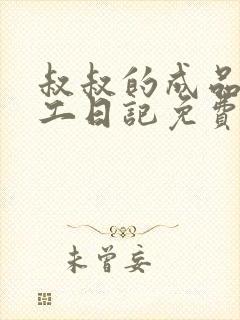 叔叔的成品
工日記免費
未曾妄